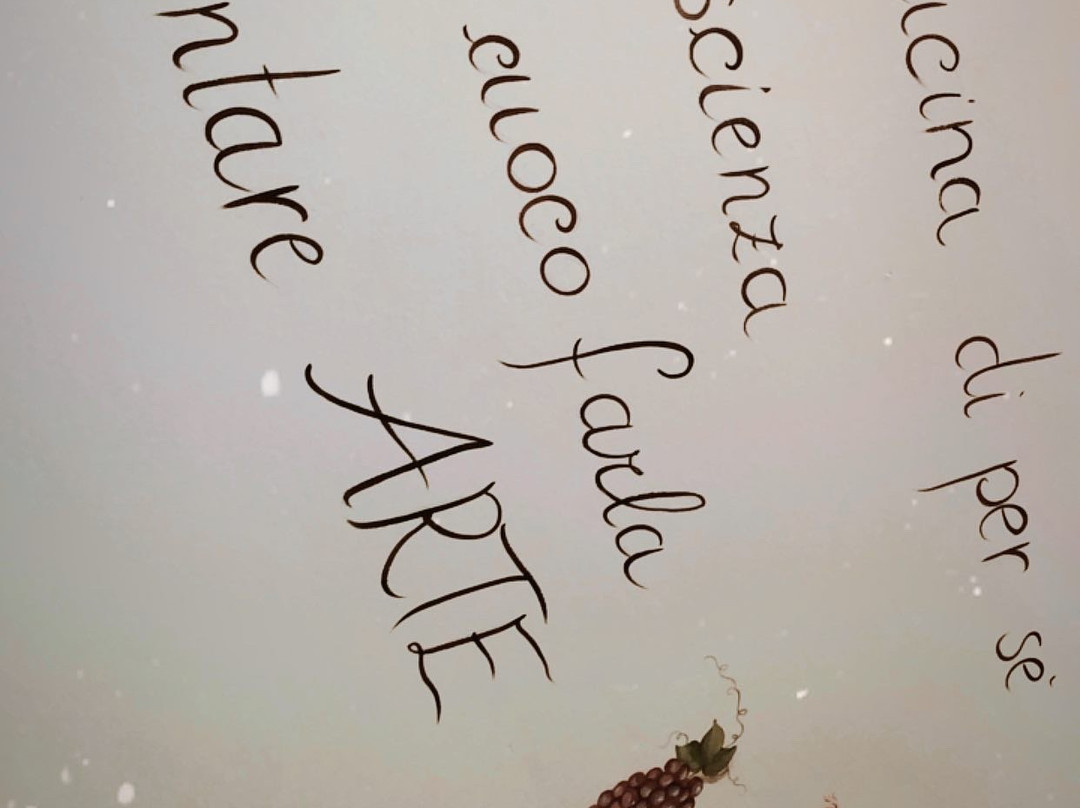 ucina di per sé
scienza
cuoco farla
ntare ARTE